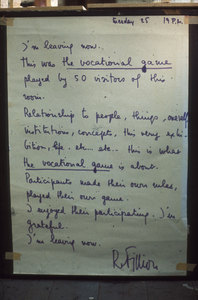 Tuesday 25 19 P.M.
I'm leaving now.
This was the vocational game
played by 50 visitors of this
room.
Relationship to people, things, oneself,
institutions, concepts, this very exhi-
bition, life, etc.. etc.. this is what
the vocational game is about.
Participants made their own rules,
played their own game.
I enjoyed their participating. I'm
grateful.
I'm leaving now.
R. Filliou